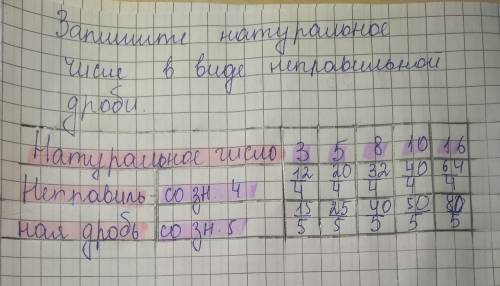 Запишите натуральное
число в виде неправильной
дроби.
Натуральное число 3 5 8 10 16
Неправиль- со зн. 4 12/4 20/4 32/4 40/4 64/4
ная дробь со зн. 5 15/5 25/5 40/5 50/5 80/5